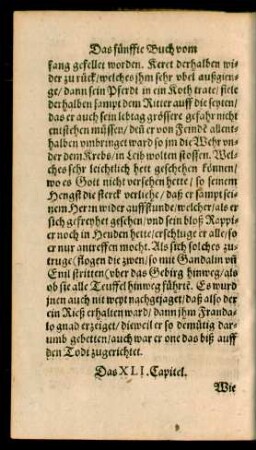 Das fünffte Buch vom
fang gefellet worden. Keret derhalben wi-
der zu rück/ welches jhm sehr vbel außgien-
ge/ dann sein Pferdt in ein Koth trate/ fiele
derhalben sampt dem Ritter auff die seyten/
das er auch sein lebtag grössere gefahr nicht
entstehen müssen/ deñ er von Feindē allent-
halben vmbringet ward so jm die Wehr vn-
der dem Krebs/ in Leib wolten stossen. Wel-
ches sehr leichtlich hett geschehen können/
wo es Gott nicht versehen hette/ so seinem
Hengst die sterck verliehe/ daß er sampt sei-
nem Herrn wider auffstunde/ welcher/ als er
sich gefreyhet gesehen/ vnd sein bloß Rappi-
er noch in Henden hette/ erschluge er alle/ so
er nur antreffen mocht. Als sich solches zu-
truge/ flogen die zwen/ so mit Gandalin vñ
Enil stritten/ vber das Gebirg hinweg/ als
ob sie alle Teuffel hinweg führtē. Es wurd
jnen auch nit weyt nachgejaget/ daß also der
ein Rieß erhalten ward/ dann jhm Franda-
lo gnad erzeiget/ dieweil er so demütig dar-
umb gebetten/ auch war er one das biß auff
den Todt zugerichtet.
Das XLI. Capitel.
Wie